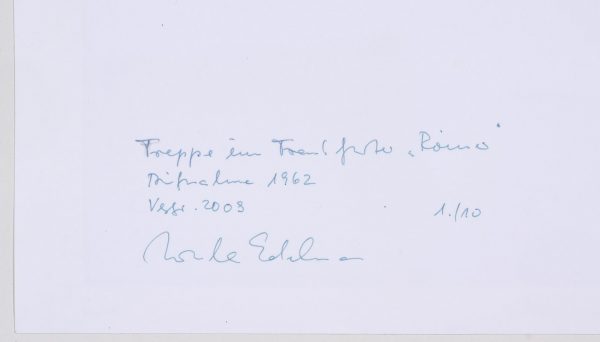 Treppe im Frankfurter „Römer“
Aufnahme 1962
Vergr. 2009 1./10
Ursula Edelmann